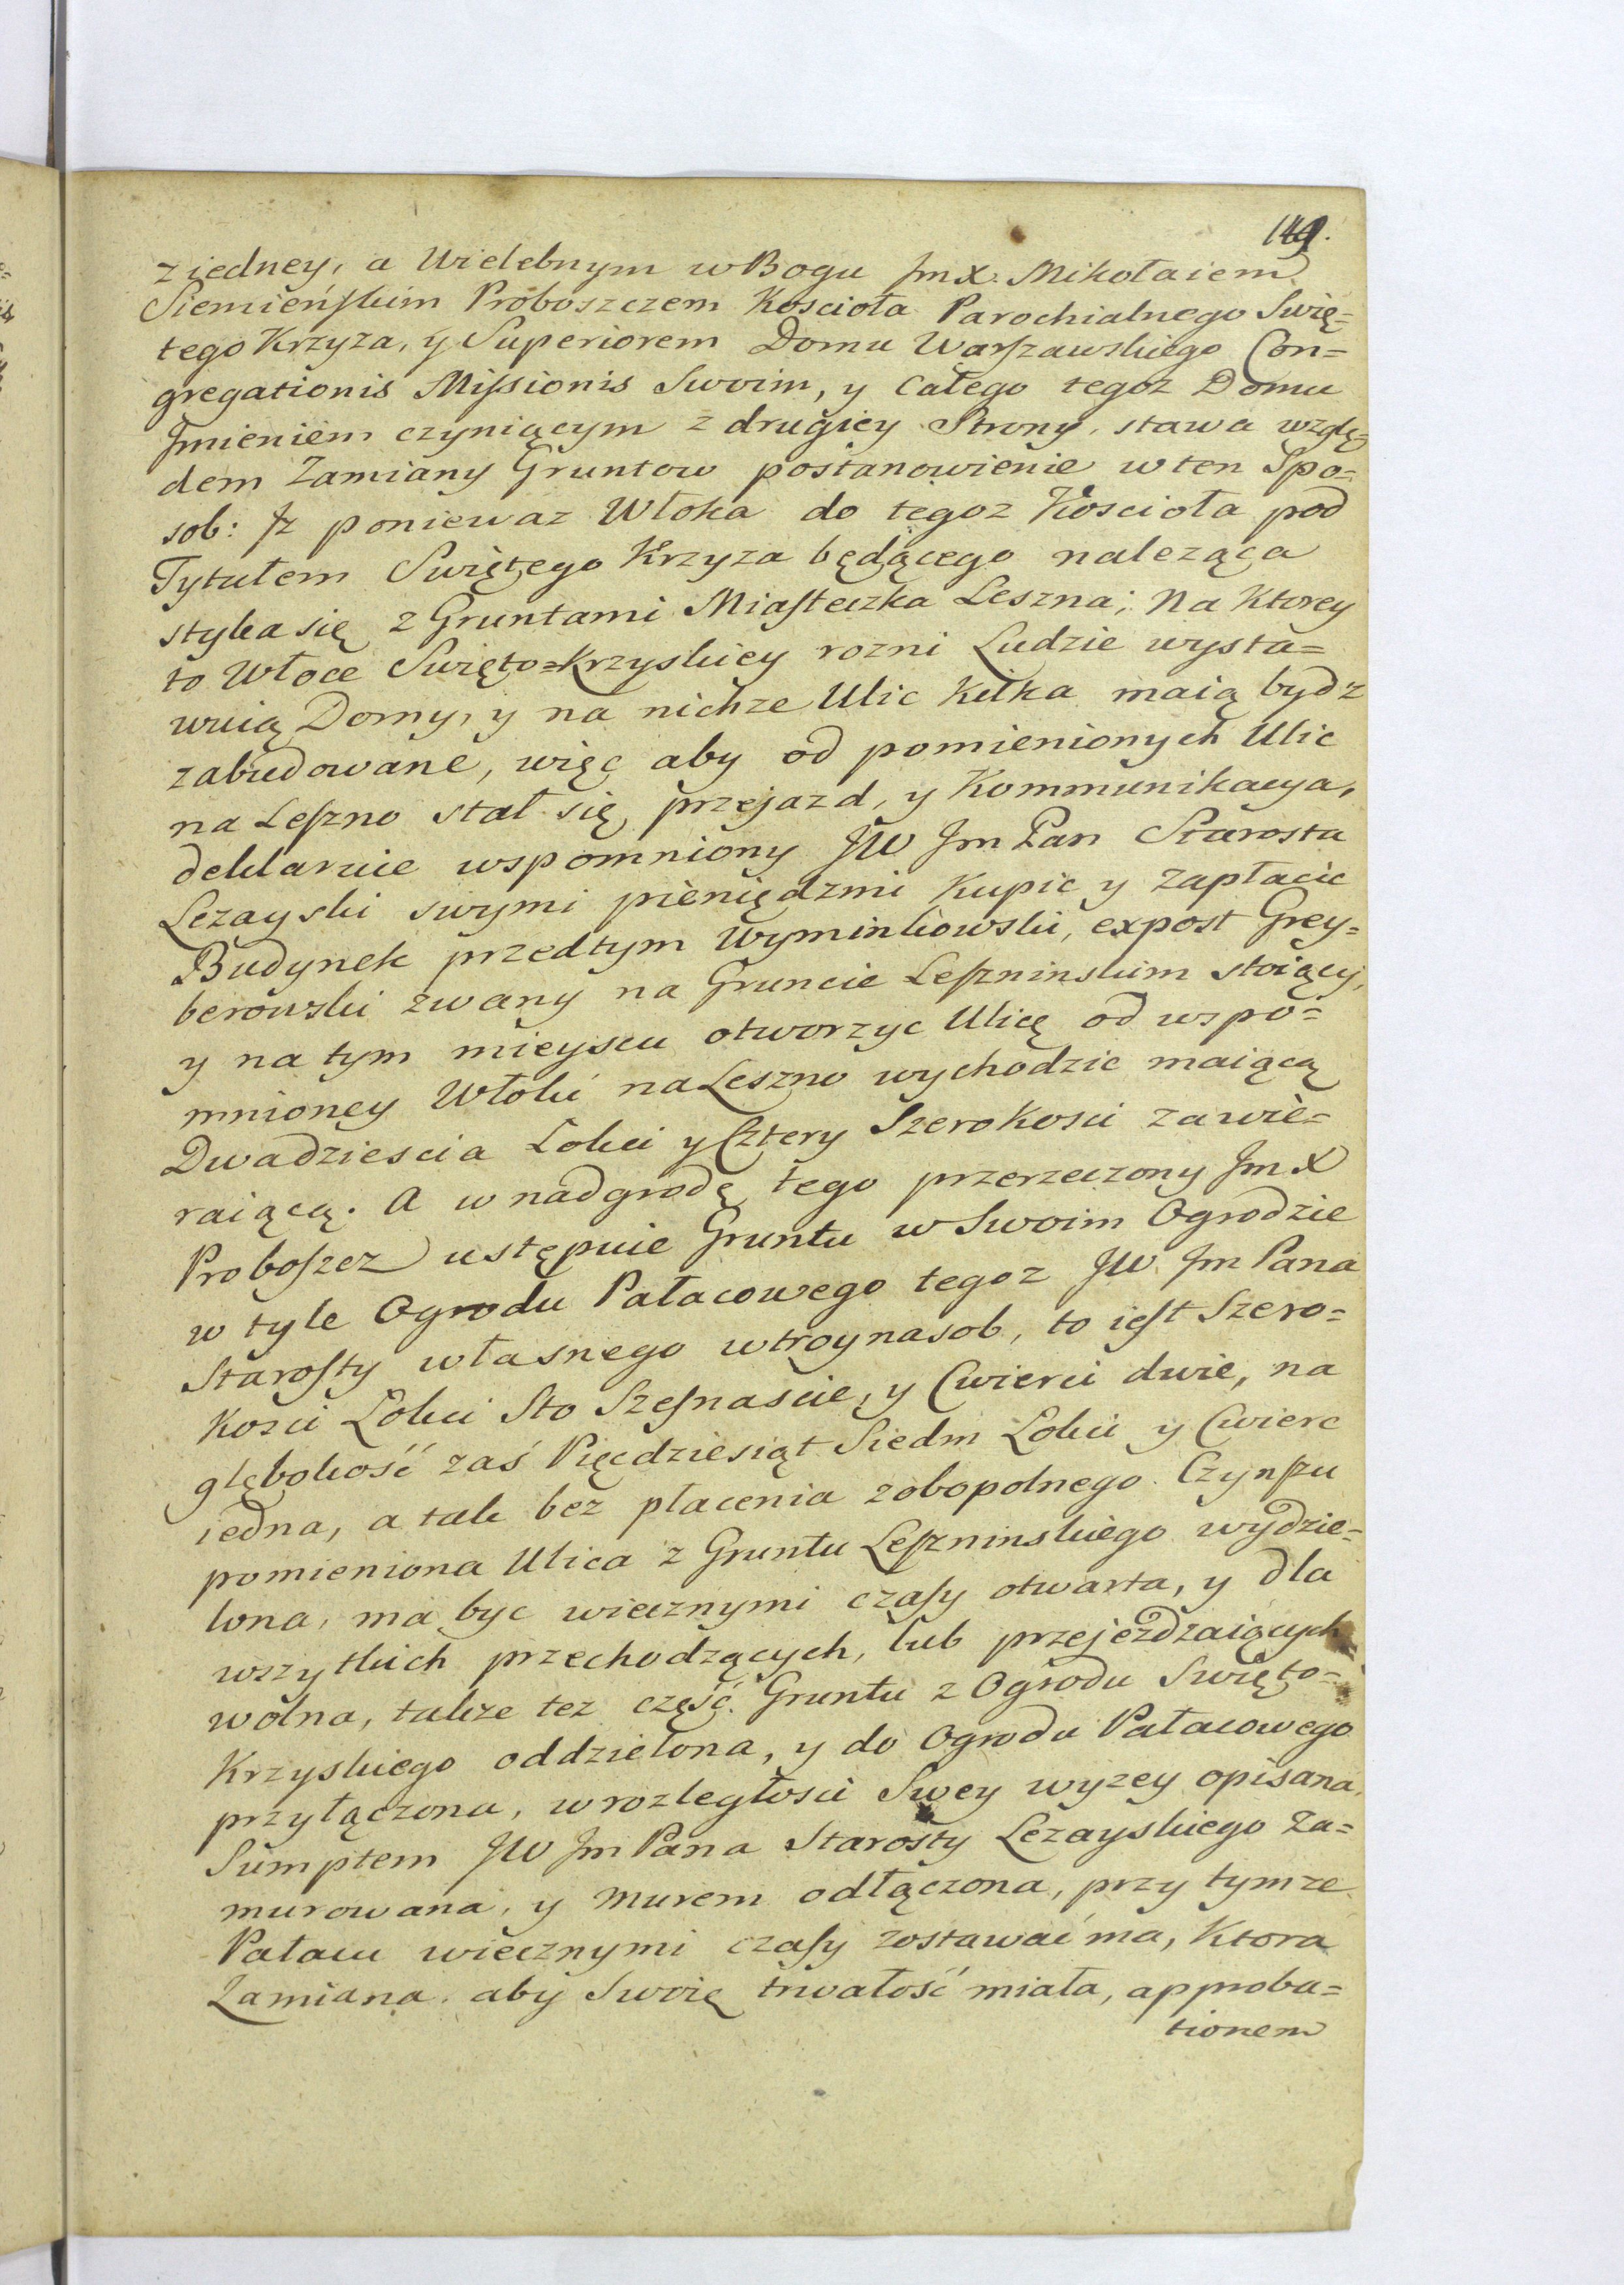 z iedney, a Wielebnym w Bogu Jmx. Mikołaiem
Siemieńskim Proboszczem Koscioła Parochialnego Swię=
tego Krzyza, y Superiorem Domu Warszawskiego Con=
gregationis Missionis Swoim, y Całego tegoz Domu
Jmieniem czyniącym z drugiey Strony, stawa wzglę=
dem Zamiany Gruntow postanowienie w ten Spo=
sob: Jz poniewaz Włoka do tegoz Koscioła pod
Tytułem Swiętego Krzyza będącego naleząca
styka się z Gruntami Miasteczka Leszna; Na Ktorey
to Włoce Swięto=Krzyskiey rozni Ludzie wysta=
wuią Domy, y na nichze Ulic Kilka maią bydz
zabudowane, więc aby od pomienionych Ulic
na Leszno stał się przejazd, y Kommunikacya,
deklaruie wspomniony JW Jm Pan Starosta
Lezayski swymi pieniędzmi Kupic y Zapłacic
Budynek przedtym Wyminkowski, expost Grey=
berowski zwany na Gruncie Leszninskim stoiący,
y na tym mieyscu otworzyc Ulicę od wspo=
mnioney Włoki na Leszno wychodzic maiącą
Dwadziescia Łokci y Cztery Szerokosci zawie=
raiącą. A w nadgrodę tego przerzeczony Jmx
Proboszcz ustępuie Gruntu w Swoim Ogrodzie
w tyle Ogrodu Pałacowego tegoz JW Jm Pana
Starosty własnego wtroynasob, to iest Szero=
kosci Łokci Sto Szesnascie, y Cwierci dwie, na
głębokość zaś Pięcdziesiąt Siedm Łokci y Cwierc
iedna, a tak bez płacenia zobopolnego Czynszu
pomieniona Ulica z Gruntu Leszninskiego wydzie=
lona, ma byc wiecznymi czasy otwarta, y dla
wszytkich przechodzących, lub przejezdzaiących
wolna, takze tez część Gruntu z Ogrodu Swięto=
Krzyskiego oddzielona, y do Ogrodu Pałacowego
przyłączona, w rozległosci Swey wyzey opisana,
Sumptem JW Jm Pana Starosty Lezayskiego Za=
murowana, y Murem odłączona, przy tymze
Pałacu wiecznymi czasy zostawać ma, Ktora
Zamiana aby Swoię trwałość miała, approba=
tionem